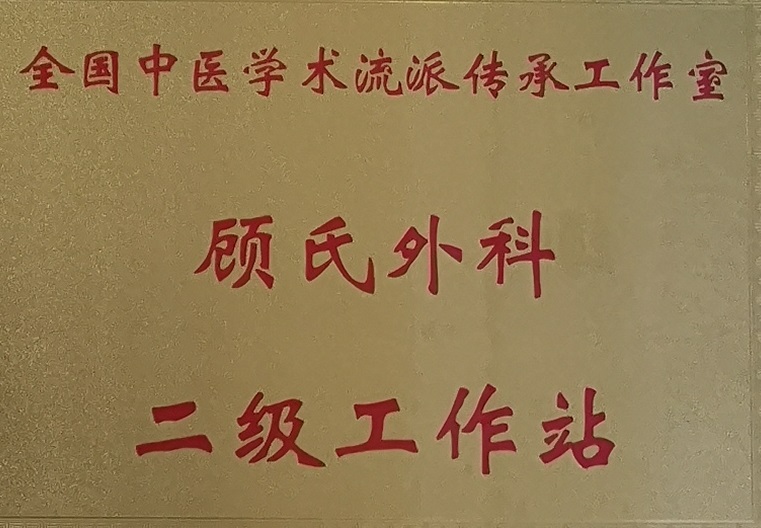 全国中医学术流派传承工作室
顾氏外科
二级工作站